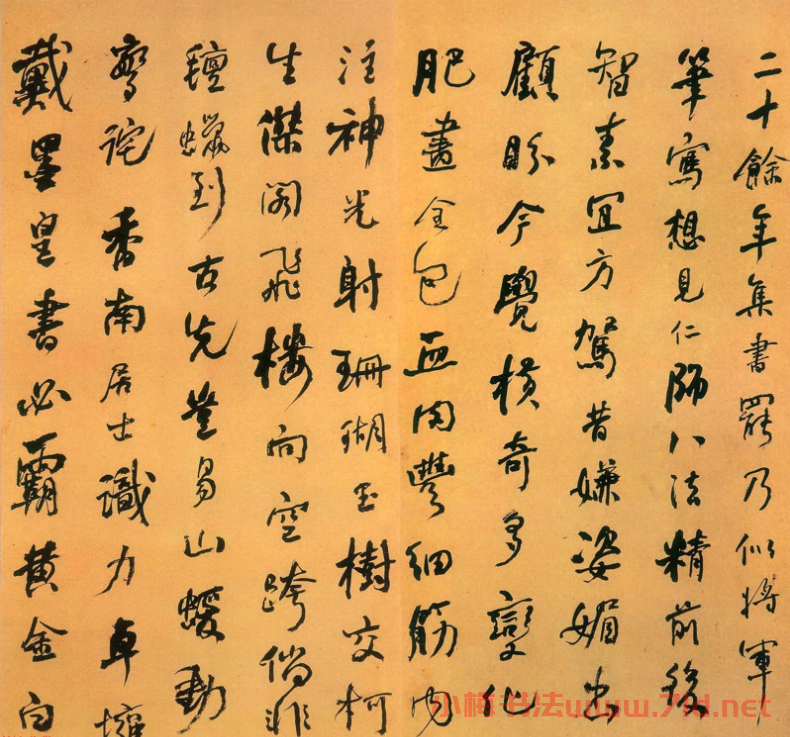 二十餘年集書罷乃似將軍
筆寫想見仁師八法精前後
智素宜方駕昔嫌姿媚出
顧盼今覺横奇多變化
肥畫全包血肉豐細筋內
注神光射珊瑚玉樹交柯
生傑閣飛樓向空跨倘非
氊蠟到古先豈易山巖動
驚詫香南居士識力卓擁
戴墨皇書必霸黄金白
小楷书法www.71d.net